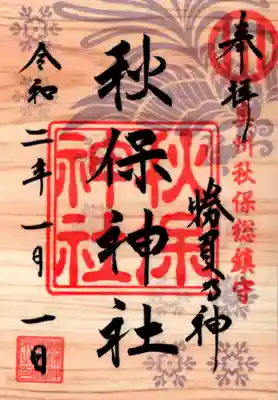 奉拝
州秋保総鎮守
勝負乃神
秋保神社
秋保
神社
令和二年一月一日